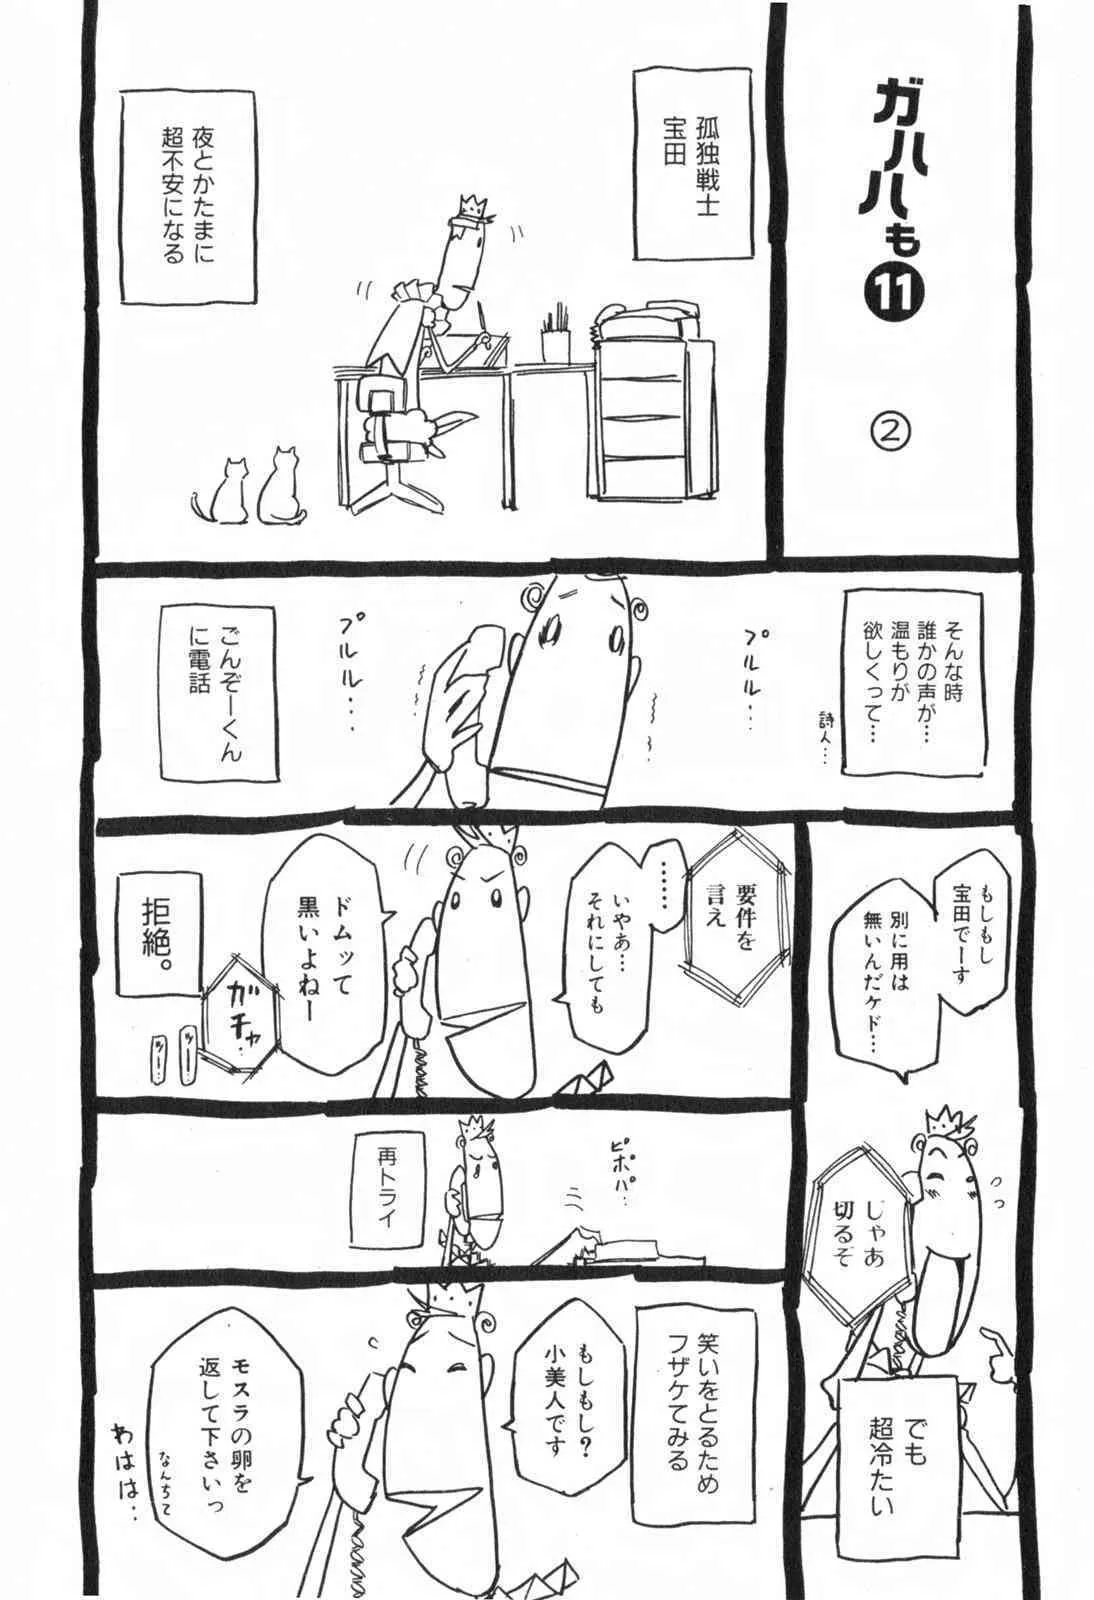 ガハハも⓫
②
孤独戦士
宝田
夜とかたまに
超不安になる
そんな時
誰かの声が…
温もりが
欲しくって…
詩人…
プルル…
プルル…
ごんぞーくん
に電話
もしもし
宝田でーす
別に用は
無いんだケド…
じゃあ
切るぞ
でも
超冷たい
要件を
言え
………
いやあ…
それにしても
ドムッて
黒いよねー
ガチャ
ツー…
ツー…
拒絶。
ピポパ…
再トライ
笑いをとるため
フザケてみる
もしもし?
小美人です
モスラの卵を
返して下さいっ
なんちて
わはは…